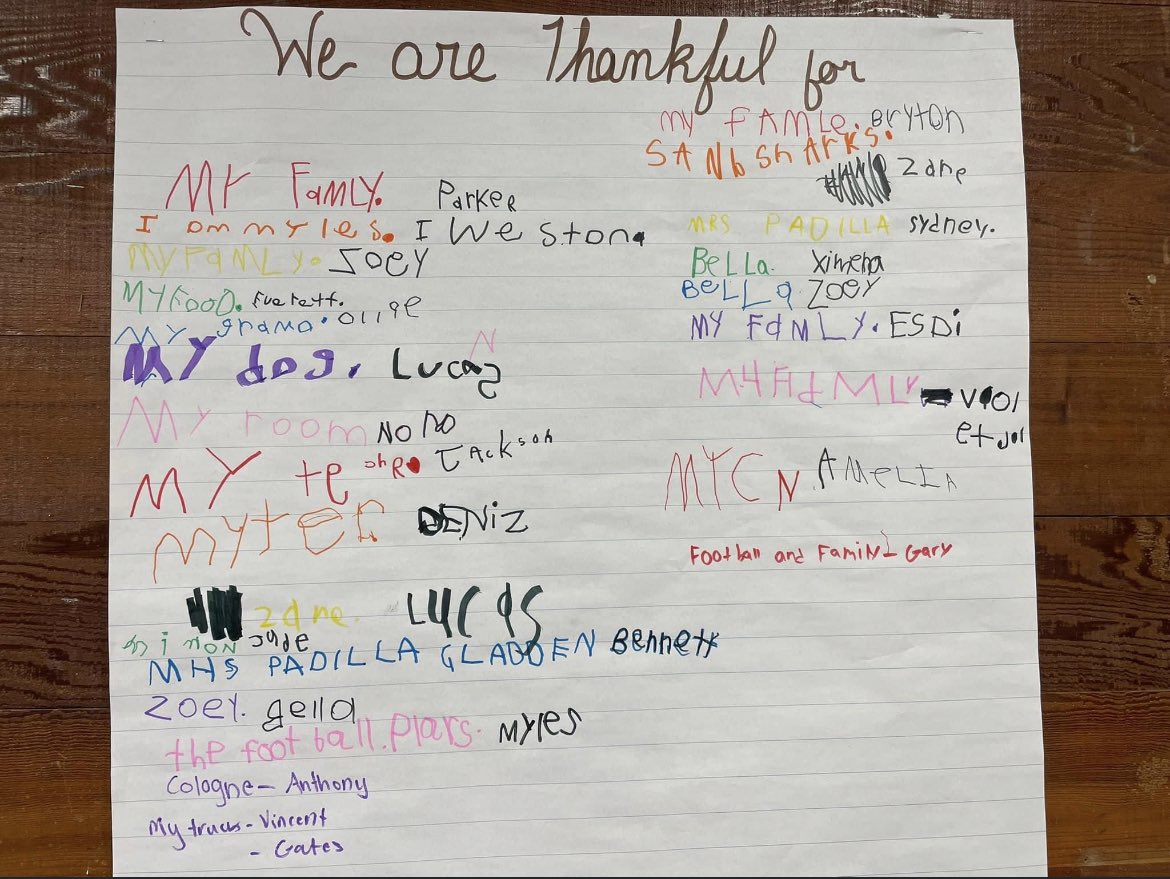 We are Thankful for
MY FamLY. Parker
I om myles. I We ston.
MYFaMLY. ZOEY
MYFOOD. Everett.
MY grama. Ollie
MY dog. Lucas
N
My room NO NO
MY te ohR. Jackson
MYTEr DENiZ
zane. Lucas
simon Jude
MHS PADILLA GLADDEN Bennett
ZOEY. geiia
the foot ball. Plars. MYles
Cologne - Anthony
My trucks - Vincent
- Gates
my FAMLe. BRYtON
SANb ShARKS.
Zane
MRS PADILLA sydney.
BeLLa. Ximena
BeLLa Zoey
MY FdMLY. ESDi
M4FdMLY viol
et
MYC N. AMeLIA
Football and Family - Gary